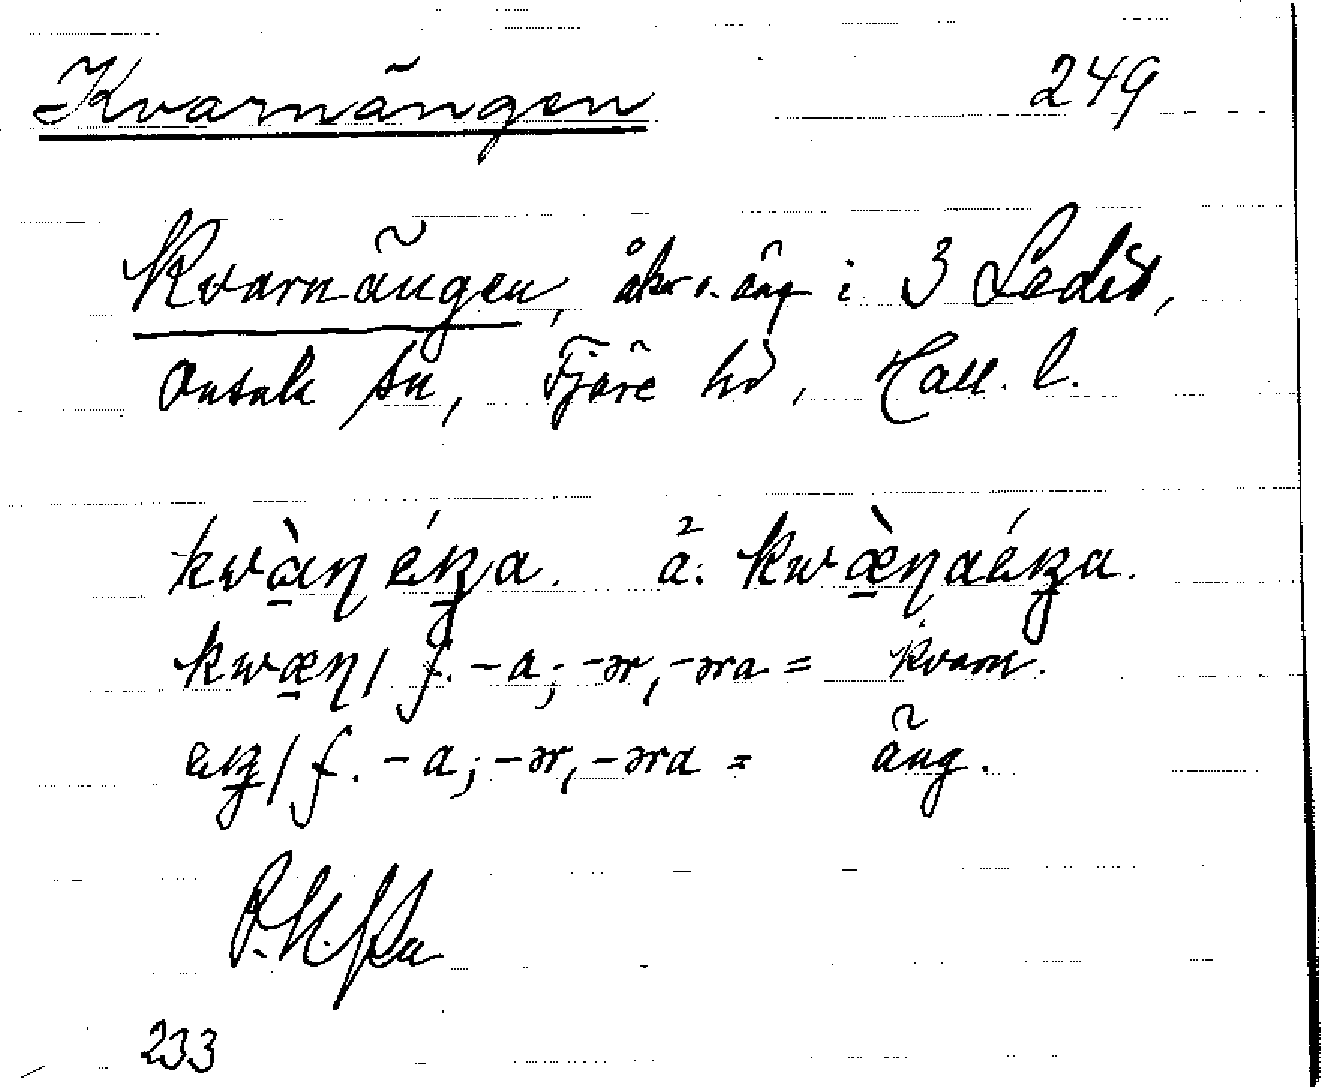 Kvarnängen 249
Kvarnängen, åker o. äng i 3 Ledet,
Onsala sn, Fjäre hd, Hall. l.
kwæ̀ɳéŋa. ä. kwæ̀ɳaéŋa.
kwæɳ/ f. -a; -ər, -əra = kvarn.
eŋ/ f. -a; -ər, -əra = äng.
233